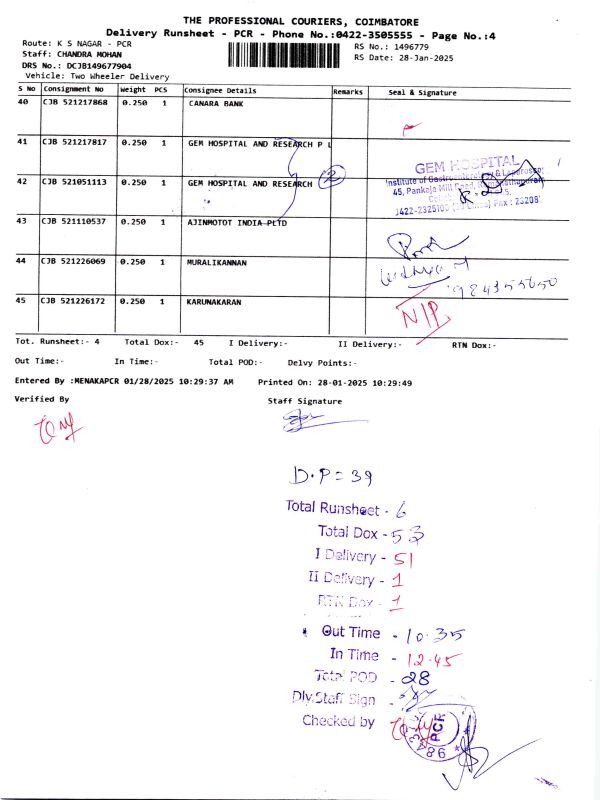 THE PROFESSIONAL COURIERS, COIMBATORE
Delivery Runsheet - PCR - Phone No.:0422-3505555 - Page No.:4
Route: K S NAGAR - PCR
RS No.: 1496779
Staff: CHANDRA MOHAN
RS Date: 28-Jan-2025
DRS No.: DCJB149677904
Vehicle: Two Wheeler Delivery
S No Consignment No Weight PCS Consignee Details Remarks Seal & Signature
40 CJB 521217868 0.250 1 CANARA BANK
41 CJB 521217817 0.250 1 GEM HOSPITAL AND RESEARCH P L
42 CJB 521051113 0.250 1 GEM HOSPITAL AND RESEARCH 2
GEM HOSPITAL
Institute of
45, Pankaja Mill Road,
43 CJB 521110537 0.250 1 AJINMOTOT INDIA PLTD
44 CJB 521226069 0.250 1 MURALIKANNAN
45 CJB 521226172 0.250 1 KARUNAKARAN
N/P
Tot. Runsheet:- 4 Total Dox:- 45 I Delivery:- II Delivery:- RTN Dox:-
Out Time:- In Time:- Total POD:- Delvy Points:-
Entered By :MENAKAPCR 01/28/2025 10:29:37 AM Printed On: 28-01-2025 10:29:49
Verified By Staff Signature
D.P = 39
Total Runsheet - 6
Total Dox - 53
I Delivery - 51
II Delivery - 1
RTN Dox - 1
Out Time - 10.35
In Time - 12.45
Total POD - 28
Dly.Staff Sign -
Checked by
PCR